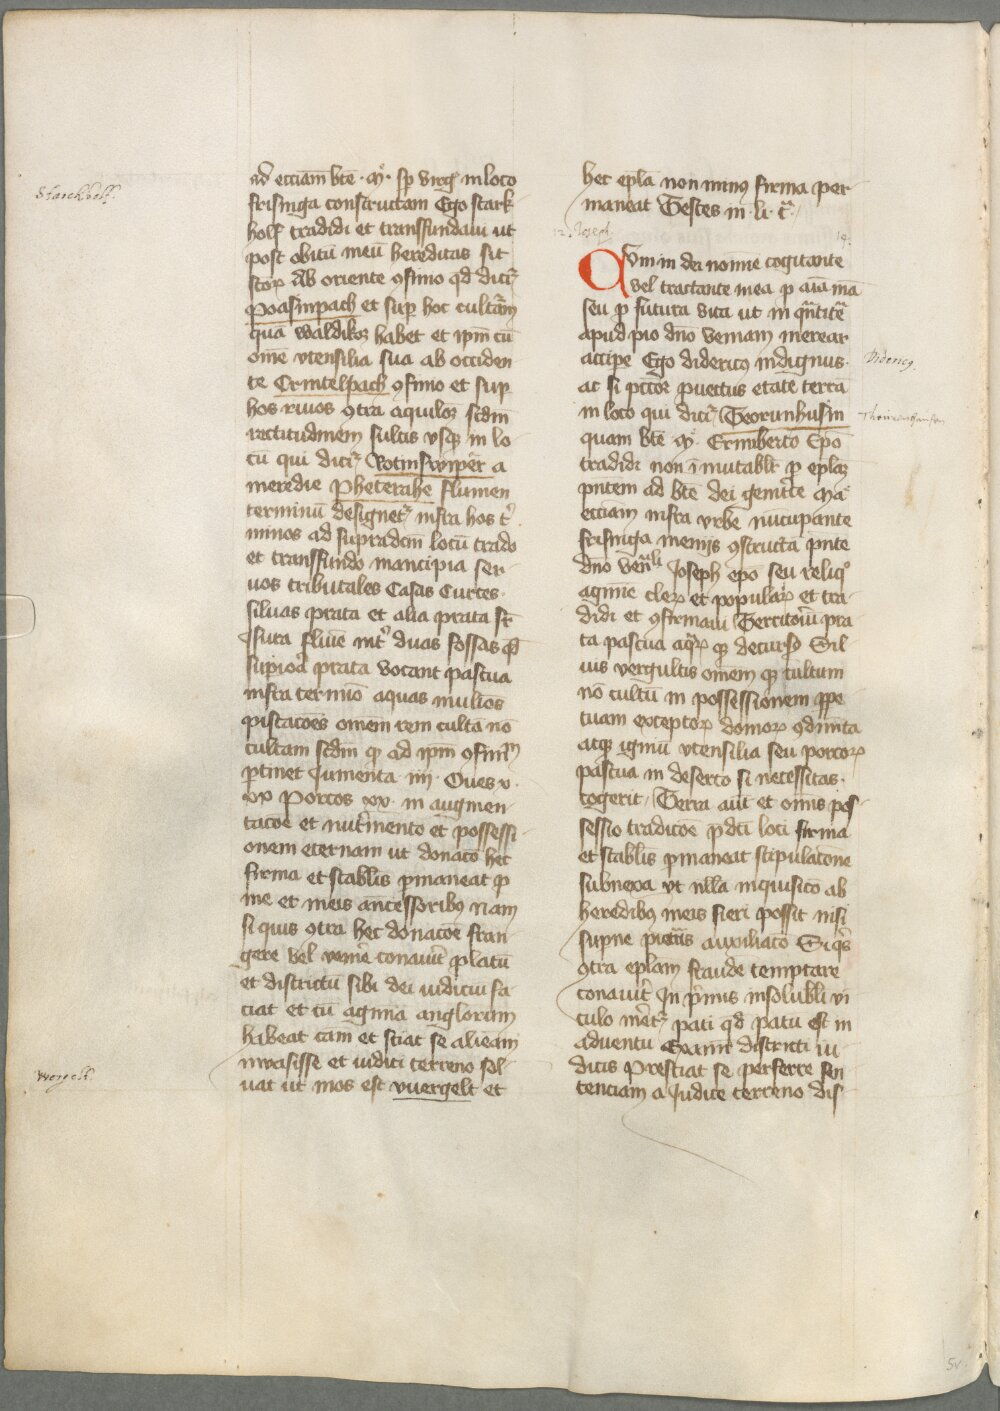 Starckholf.
ad ecciam bte · M · sp virgis in loco
frisinga constructam Ego stark-
holf tradidi et transfundavi ut
post obitu meu hereditas sit
Ab oriente 9finio qd dicitur
poasinpach et sup hoc cultam
qua waldikor habet et ipm cu
ome vtensilia sua ab occiden-
te Crintelpach 9finio et sup
hos rivos 9tra aquilo scdm
rectitudinem saltis vsq in lo
cu qui dicitur Rotinswiper a
meredie Pheterahe flumen
terminu designetur infra hos t
minos ad supradcm locu trado
et transfundo mancipia ser-
uos tributales Casas Curtes ·
siluas prata et alia prata st
Isura fluuie int duas fossas qd
supiora prata vocant pascua
infra termio aquas mulios
piscacoes omem rem culta no
cultam scdm q ad ipm 9finiu
ptinet Jumenta iiij · Oues v ·
xx porcos xx · in augmen-
tacoe et nutmento et possessi-
onem eternam ut donaco hec
firma et stablis pmaneat p
me et meis ancessoribus nam
si quis 9tra hec donacoe fran-
gere vel venire conaut platu
et districtu sibi dei iudiciu fa
ciat et cu agmia anglorum
habeat cam et sciat se alieam
inuasisse et iudici terreno sol-
uat ut mos est vuergelt et
Wergelt.
hec epla non minus firma per
maneat Testes in · li · t
12. Joseph
14.
Qvm in dei nomine cogitante
vel tractante mea p aia ma
seu p futura vita ut in qntite
apud pio dno veniam merear
accipe Ego didericus indignus ·
Didericus.
ac si pctor puectus etate terra
in loco qui dicitur Teorunhusin
quam bte M · Ermberto Epo
tradidi non imutablr p eplam
pntem ad bte dei genitce Ma
ecciam infra vrbe nucupante
frisinga menijs 9structa pnte
dno venli Joseph epo seu reliq
agmie cler et popular et tra-
didi et 9firmavi Territoriu pra
ta pascua aqr q decurs Sil-
uis vergultis omem q cultum
no cultu in possessionem ppe
tuam exceptor domor 9diunta
atq igniu vtensilia seu porcor
pascua in deserto si necessitas ·
cogerit, Terra aut et omis pos-
sessio tradicoe pdci loci firma
et stablis pmaneat stipulacone
subnexa vt nlla inquisico ab
heredibus meis fieri possit nisi
supne pietatis auxiliaco Si qs
9tra eplam fraude temptare
conaut In pmis insolubli vi
culo meretur pati qd patu est in
aduentu Exami districti iu-
dicis Presciat se perferre sen
tenciam a Judice terreno dis-
5v.